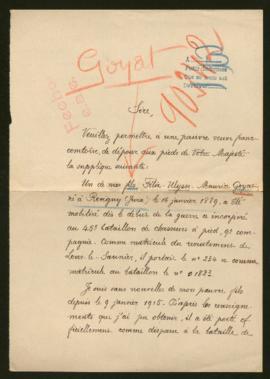 Goyat
Sire,
Veuillez permettre à une pauvre veuve franc-
comtoise, de déposer aux pieds de Votre Majesté
la supplique suivante.
Un de mes fils Félix-Ulysse-Maurice Goyat
né à Revigny (Jura) le 16 janvier 1879, a été
mobilisé dès le début de la guerre et incorporé
au 45e bataillon de chasseurs à pied, 9e com-
pagnie. Comme matricule du recrutement de
Lons-le-Saunier, il portait le n° 234 et comme
matricule au bataillon le n° 01883
Je suis sans nouvelle de mon pauvre fils
depuis le 9 janvier 1915. D'après les renseigne-
ments que j'ai pu obtenir, il a été porté of-
ficiellement comme disparu à la bataille de